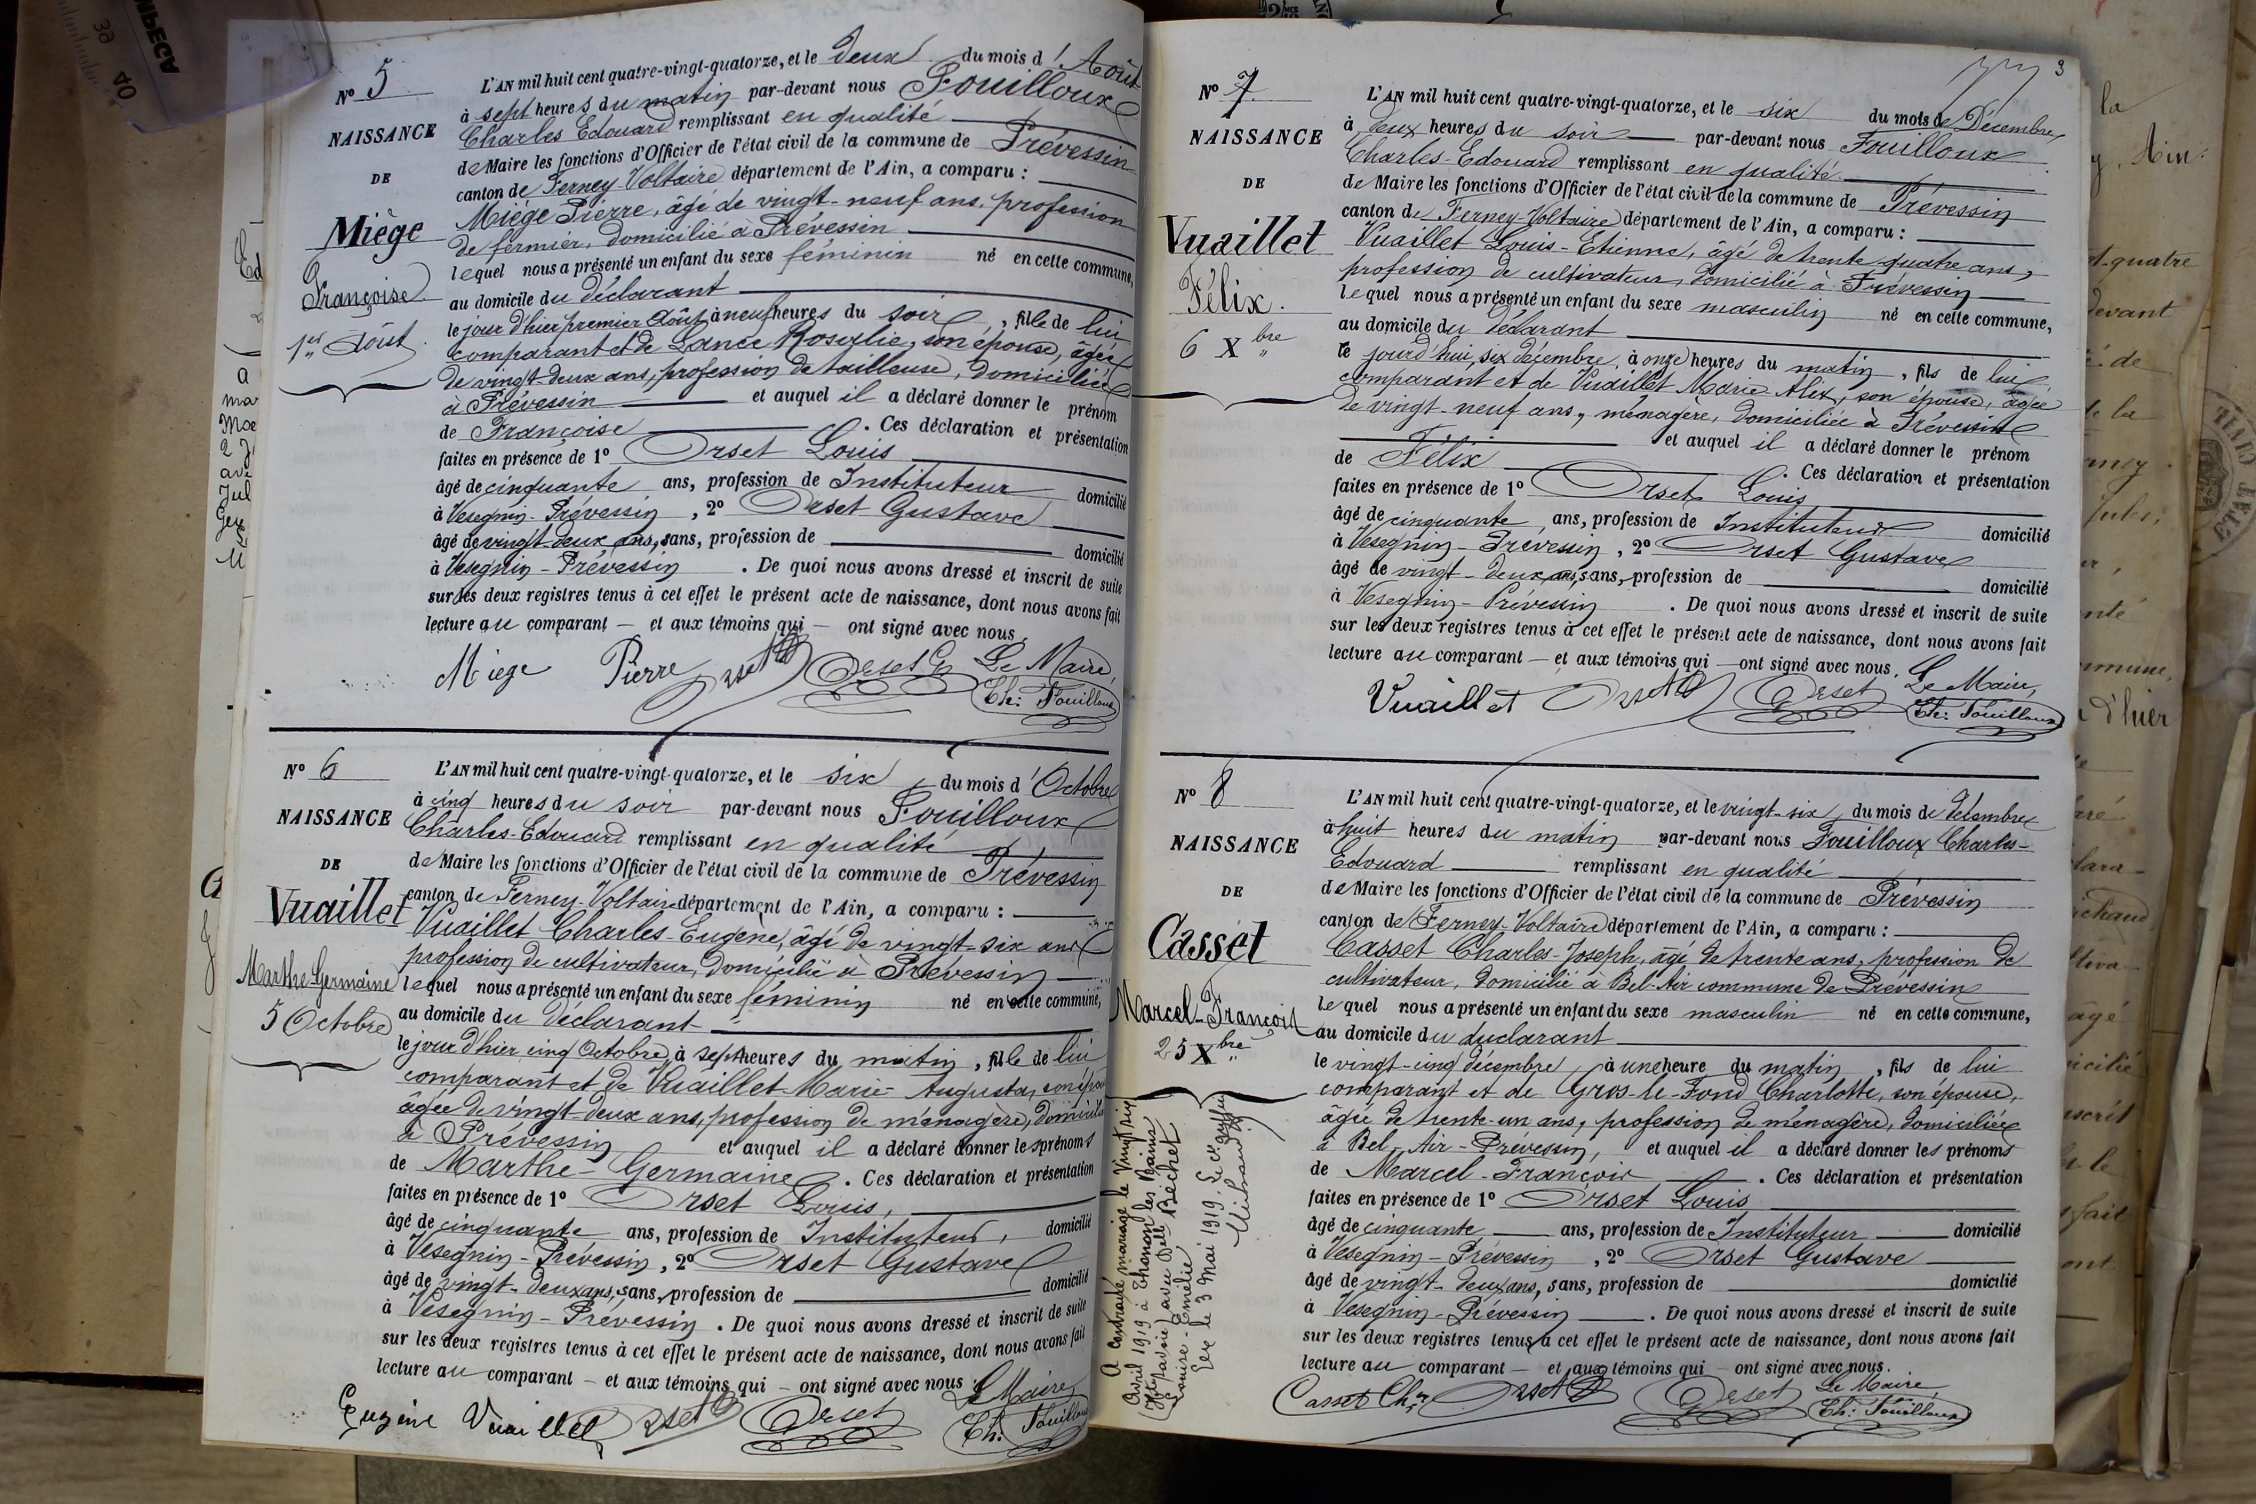 Nº 5
NAISSANCE
DE
Miège
Françoise
1er Août
L'AN mil huit cent quatre-vingt-quatorze, et le deux du mois d'Août
à sept heures du matin par-devant nous Fouilloux
Charles Edouard remplissant en qualité
de Maire les fonctions d'Officier de l'état civil de la commune de Prévessin
canton de Ferney-Voltaire département de l'Ain, a comparu :
Miège Pierre, âgé de vingt-neuf ans, profession
de fermier, domicilié à Prévessin
lequel nous a présenté un enfant du sexe féminin né en cette commune,
au domicile du déclarant
le jour d'hier premier Août à neuf heures du soir, fille de lui
comparant et de Lance Rosalie, son épouse, âgée
de vingt-deux ans, profession de tailleuse, domiciliée
à Prévessin et auquel il a déclaré donner le prénom
de Françoise. Ces déclaration et présentation
faites en présence de 1º Orset Louis
âgé de cinquante ans, profession de Instituteur domicilié
à Vesegnin-Prévessin, 2º Orset Gustave
âgé de vingt-deux ans, sans, profession de domicilié
à Vesegnin-Prévessin. De quoi nous avons dressé et inscrit de suite
sur les deux registres tenus à cet effet le présent acte de naissance, dont nous avons fait
lecture au comparant — et aux témoins qui — ont signé avec nous.
Miège Pierre Orset Orset G. Le Maire,
Ch: Fouilloux
Nº 6
NAISSANCE
DE
Vuaillet
Marthe-Germaine
5 Octobre
L'AN mil huit cent quatre-vingt-quatorze, et le six du mois d'Octobre
à cinq heures du soir par-devant nous Fouilloux
Charles-Edouard remplissant en qualité
de Maire les fonctions d'Officier de l'état civil de la commune de Prévessin
canton de Ferney-Voltaire département de l'Ain, a comparu :
Vuaillet Charles-Eugène, âgé de vingt-six ans
profession de cultivateur, domicilié à Prévessin
lequel nous a présenté un enfant du sexe féminin né en cette commune,
au domicile du déclarant
le jour d'hier cinq Octobre, à sept heures du matin, fille de lui
comparant et de Vuaillet Marie-Augusta, son épou
âgée de vingt-deux ans, profession de ménagère, domicilié
à Prévessin et auquel il a déclaré donner les prénoms
de Marthe-Germaine. Ces déclaration et présentation
faites en présence de 1º Orset Louis,
âgé de cinquante ans, profession de Instituteur, domicilié
à Vesegnin-Prévessin, 2º Orset Gustave
âgé de vingt-deux ans, sans, profession de domicilié
à Vesegnin-Prévessin. De quoi nous avons dressé et inscrit de suite
sur les deux registres tenus à cet effet le présent acte de naissance, dont nous avons fait
lecture au comparant — et aux témoins qui — ont signé avec nous.
Eugène Vuaillet Orset Orset Le Maire,
Ch: Fouilloux
3
Nº 7
NAISSANCE
DE
Vuaillet
Félix.
6 Xbre
L'AN mil huit cent quatre-vingt-quatorze, et le six du mois de Décembre
à deux heures du soir par-devant nous Fouilloux
Charles-Edouard remplissant en qualité
de Maire les fonctions d'Officier de l'état civil de la commune de Prévessin
canton de Ferney-Voltaire département de l'Ain, a comparu :
Vuaillet Louis-Etienne, âgé de trente-quatre ans,
profession de cultivateur, domicilié à Prévessin
lequel nous a présenté un enfant du sexe masculin né en cette commune,
au domicile du déclarant
le jourd'hui, six décembre, à onze heures du matin, fils de lui
comparant et de Vuaillet Marie Alix, son épouse, âgée
de vingt-neuf ans, ménagère, domiciliée à Prévessin
et auquel il a déclaré donner le prénom
de Félix. Ces déclaration et présentation
faites en présence de 1º Orset Louis
âgé de cinquante ans, profession de Instituteur domicilié
à Vesegnin-Prévessin, 2º Orset Gustave
âgé de vingt-deux ans, sans, profession de domicilié
à Vesegnin-Prévessin. De quoi nous avons dressé et inscrit de suite
sur les deux registres tenus à cet effet le présent acte de naissance, dont nous avons fait
lecture au comparant — et aux témoins qui — ont signé avec nous.
Vuaillet Orset Orset Le Maire,
Ch: Fouilloux
Nº 8
NAISSANCE
DE
Casset
Marcel-François
25 Xbre
A contracté mariage le vingt six
Avril 1919 à Thonon les Bains
(Hte Savoie) avec Delle Béchet
Louise-Emélie
Gex le 3 Mai 1919. Le Greffier
L'AN mil huit cent quatre-vingt-quatorze, et le vingt-six du mois de décembre
à huit heures du matin par-devant nous Fouilloux Charles-
Edouard remplissant en qualité
de Maire les fonctions d'Officier de l'état civil de la commune de Prévessin
canton de Ferney-Voltaire département de l'Ain, a comparu :
Casset Charles-Joseph, âgé de trente ans, profession de
cultivateur, domicilié à Bel-Air commune de Prévessin
lequel nous a présenté un enfant du sexe masculin né en cette commune,
au domicile du duclarant
le vingt-cinq décembre à une heure du matin, fils de lui
comparant et de Gros-le-Fond Charlotte, son épouse,
âgée de trente-un ans, profession de ménagère, domiciliée
à Bel-Air-Prévessin, et auquel il a déclaré donner les prénoms
de Marcel-François. Ces déclaration et présentation
faites en présence de 1º Orset Louis
âgé de cinquante ans, profession de Instituteur domicilié
à Vesegnin-Prévessin, 2º Orset Gustave
âgé de vingt-deux ans, sans, profession de domicilié
à Vesegnin-Prévessin. De quoi nous avons dressé et inscrit de suite
sur les deux registres tenus à cet effet le présent acte de naissance, dont nous avons fait
lecture au comparant — et aux témoins qui — ont signé avec nous.
Casset Ch. Orset Orset Le Maire,
Ch: Fouilloux